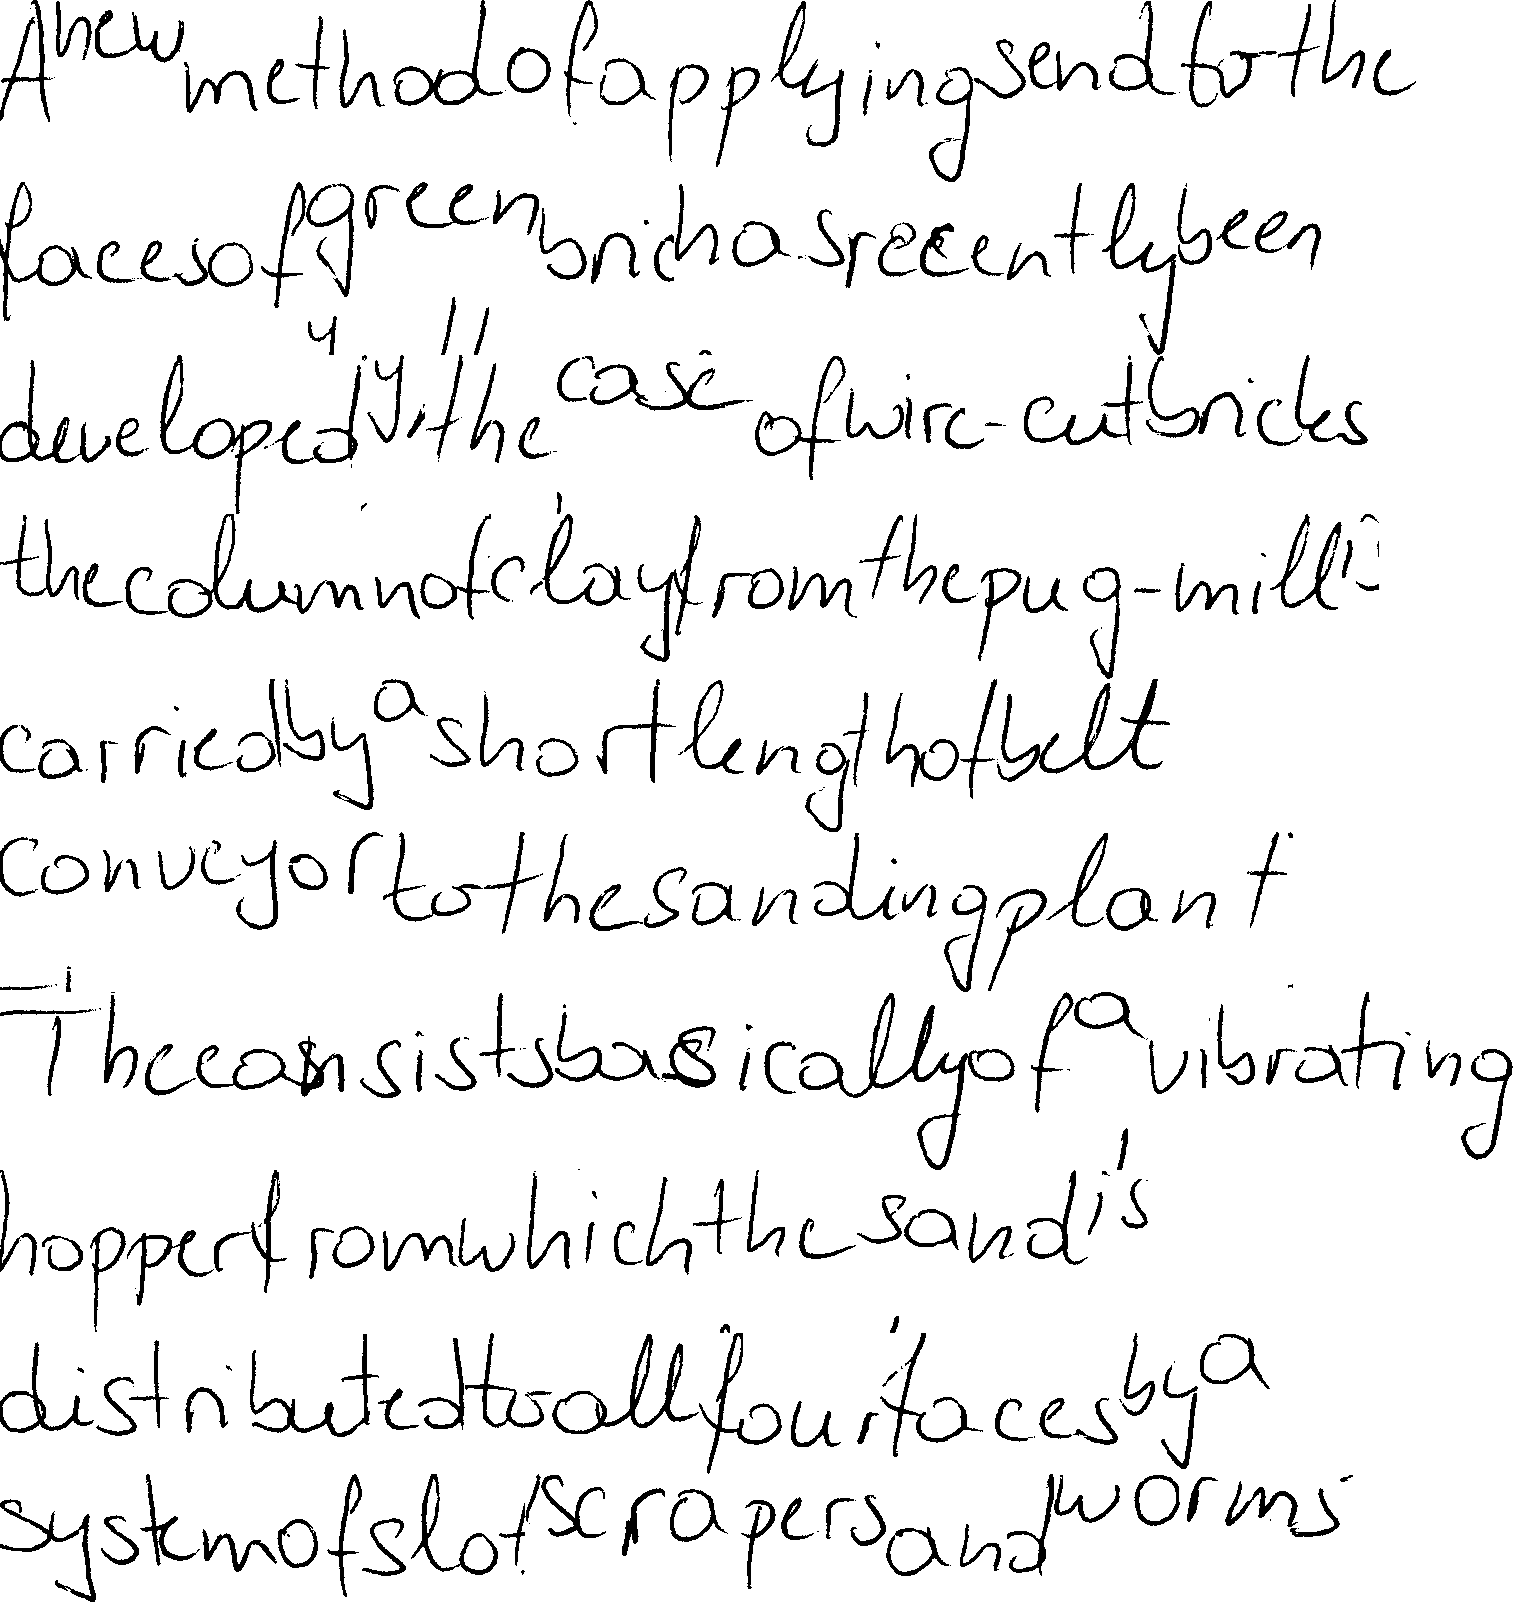 A new method of applying send to the
faces of green bric has recently been
developed the case of wire-cut bricks
the column of clay from the pug-mill
carried by a short length of belt
conveyor to the sanding plant
The consists basically of a vibrating
hopper from which the sand is
distributed to all four faces by a
system of slot scrapers and worms